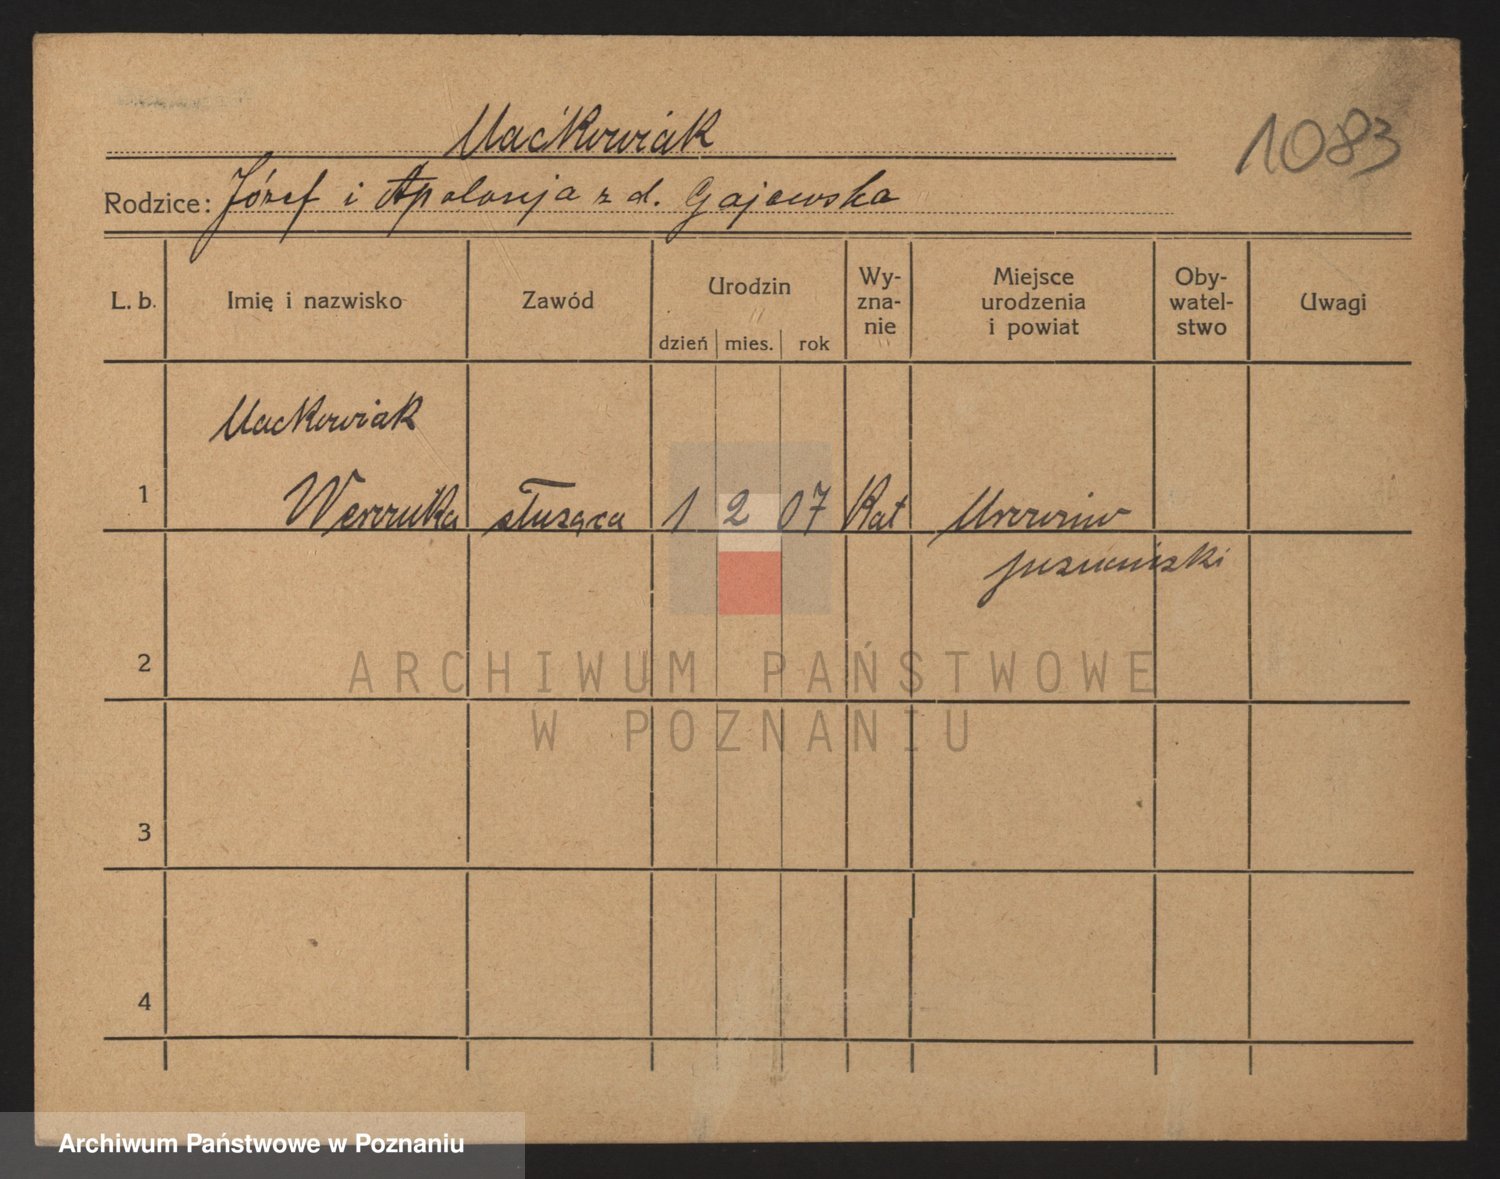 Maćkowiak
1083
Rodzice: Józef i Apolonja z d. Gajewska
L. b. Imię i nazwisko Zawód Urodzin dzień mies. rok Wy-zna-nie Miejsce urodzenia i powiat Oby-watel-stwo Uwagi
Mackowiak
1 Weronika służąca 1 2 07 Kat
2
ARCHIWUM PAŃSTWOWE
W POZNANIU
3
4
Archiwum Państwowe w Poznaniu